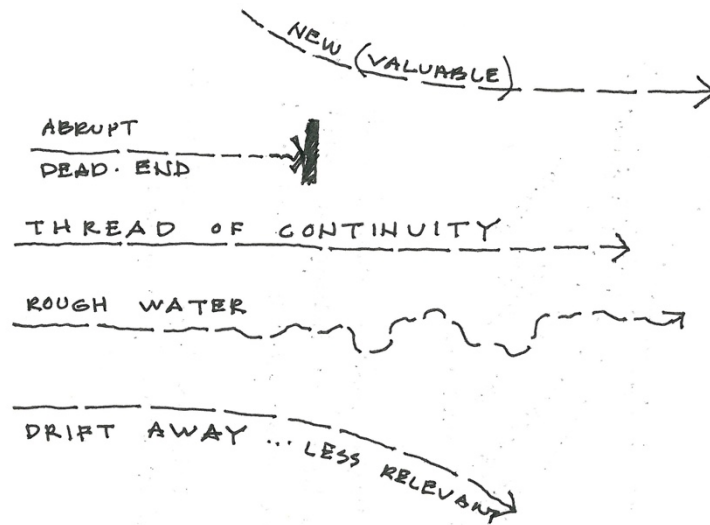 NEW (VALUABLE)
ABRUPT
DEAD. END
THREAD OF CONTINUITY
ROUGH WATER
DRIFT AWAY ... LESS RELEVANT